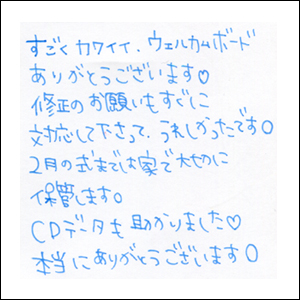 すごくカワイイ、ウェルカムボード
ありがとうございます♡
修正のお願いもすぐに
対応して下さって、うれしかったです。
2月の式までは家で大切に
保管します。
CDデータも助かりました♡
本当にありがとうございます。